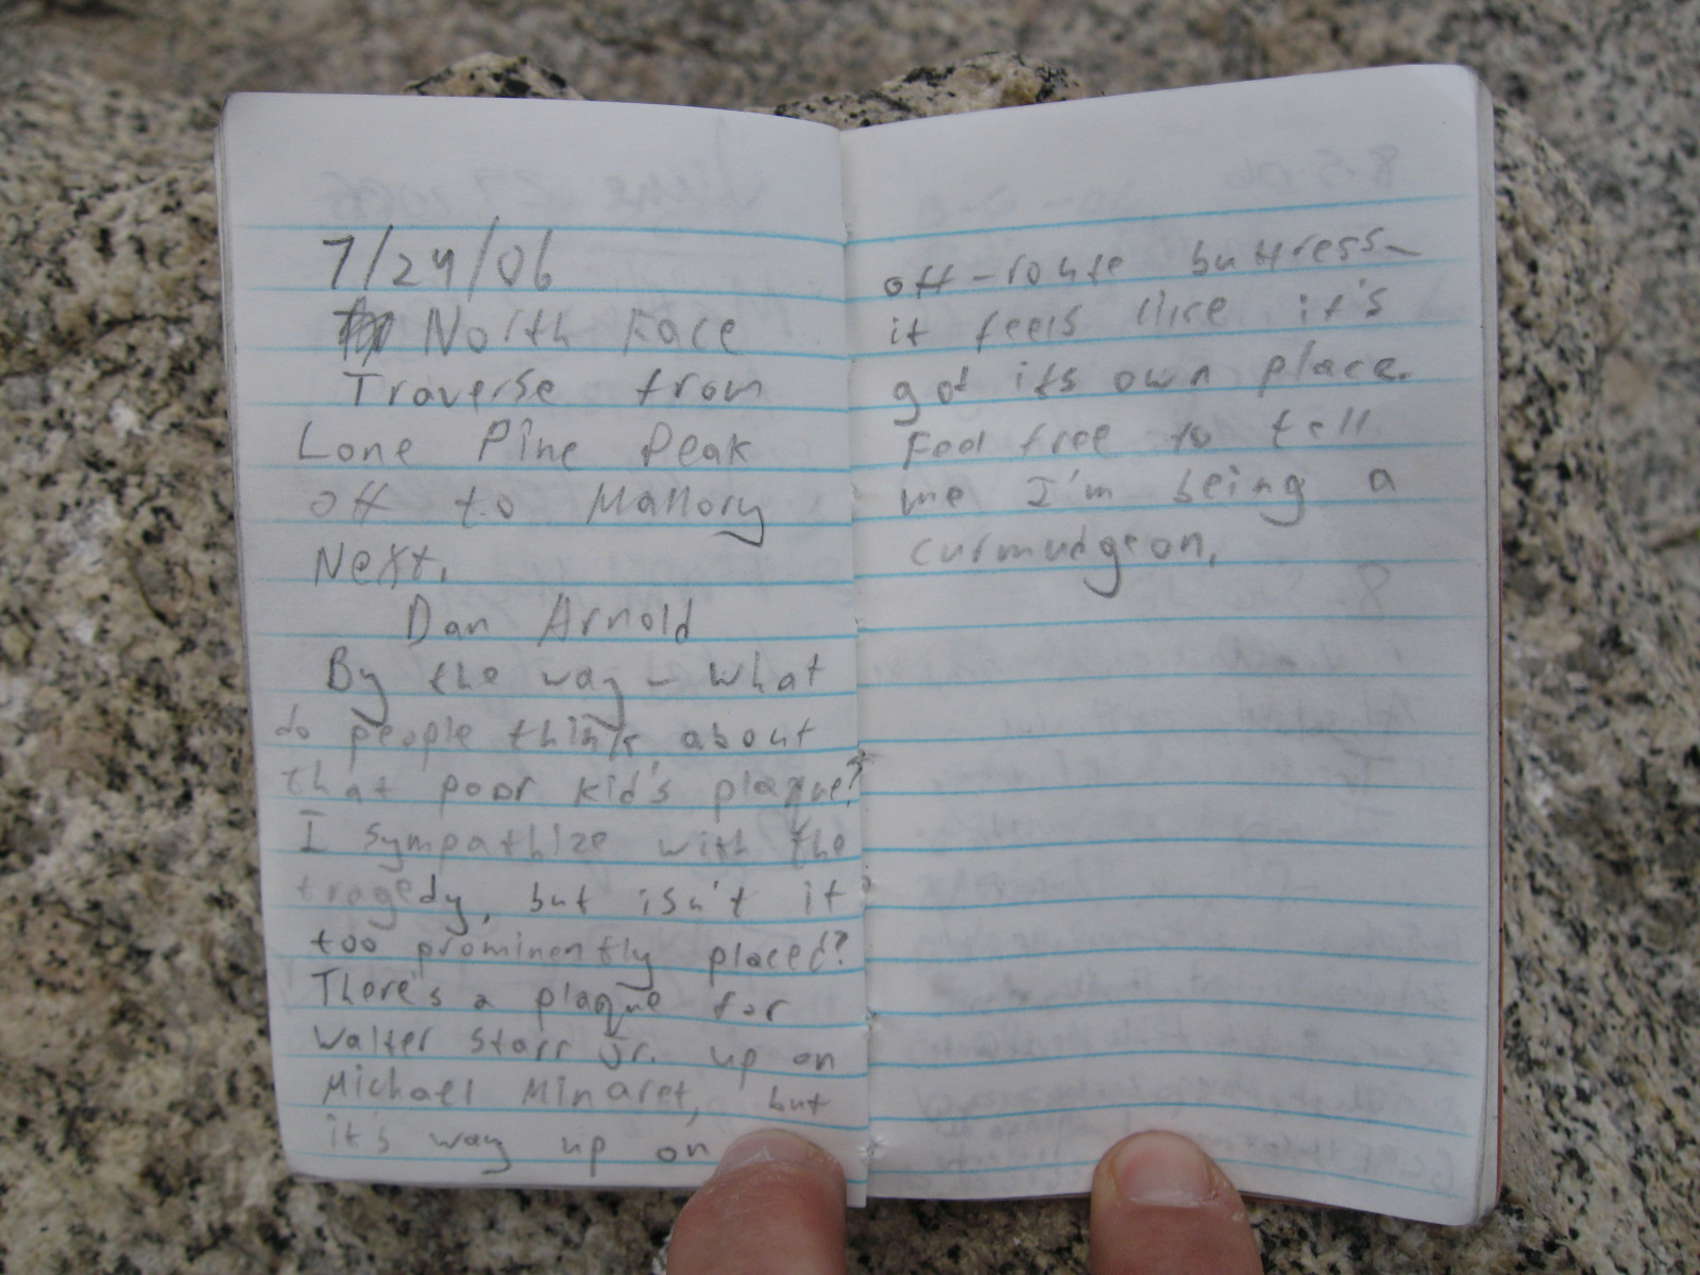 7/24/06
North Face
Traverse from
Lone Pine Peak
off to Mallory
Next.
Dan Arnold
By the way - what
do people think about
that poor kid's plaque?
I sympathize with the
tragedy, but isn't it
too prominently placed?
There's a plaque for
Walter Starr Jr. up on
Michael Minaret, but
it's way up on
off-route buttress-
it feels like it's
got its own place.
Feel free to tell
me I'm being a
curmudgeon.